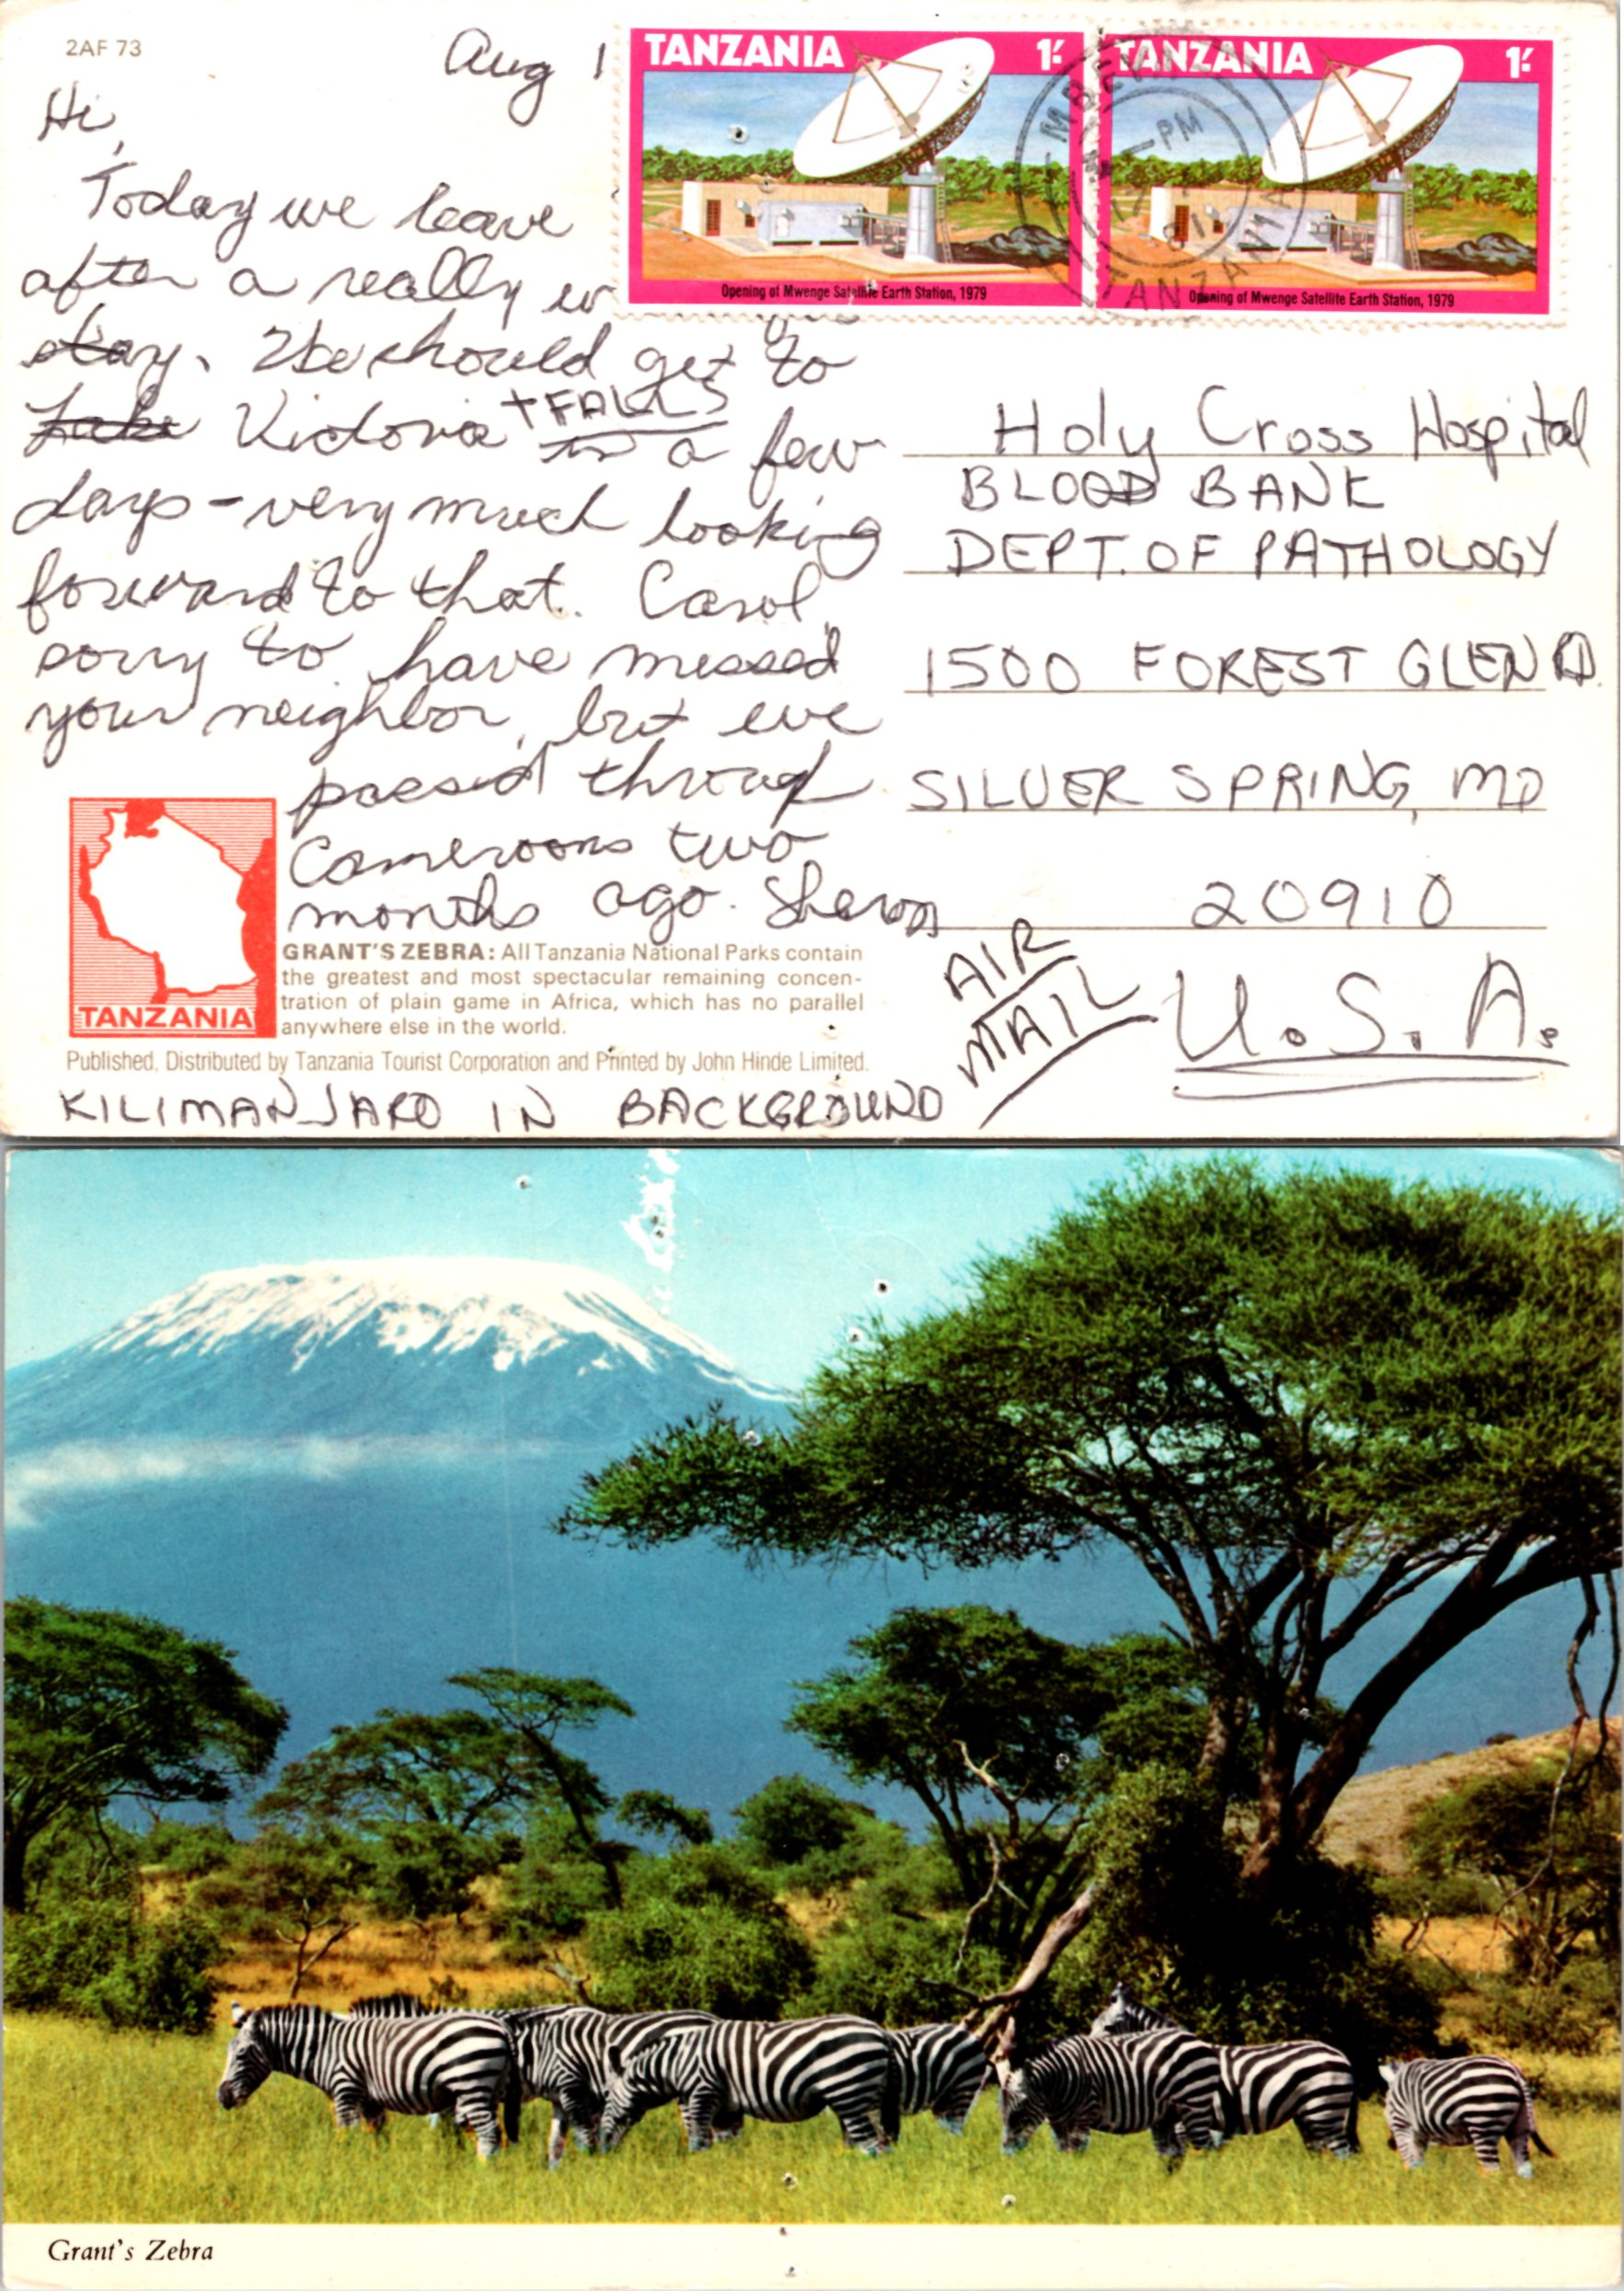 2AF 73
Aug 1
Hi,
Today we leave
after a really w
stay. We should get to
Lake Victoria + FALLS in a few
days - very much looking
forward to that. Carol,
sorry to have missed
your neighbor, but we
passed through
Cameroons two
months ago. Sharon
TANZANIA 1/-
Opening of Mwenge Satellite Earth Station, 1979
TANZANIA 1/-
Opening of Mwenge Satellite Earth Station, 1979
MBEYA
PM
81
TANZANIA
Holy Cross Hospital
BLOOD BANK
DEPT. OF PATHOLOGY
1500 FOREST GLEN RD.
SILVER SPRING, MD
20910
AIR
MAIL
U.S.A.
TANZANIA
GRANT'S ZEBRA: All Tanzania National Parks contain
the greatest and most spectacular remaining concen-
tration of plain game in Africa, which has no parallel
anywhere else in the world.
Published, Distributed by Tanzania Tourist Corporation and Printed by John Hinde Limited.
KILIMANJARO IN BACKGROUND
Grant's Zebra